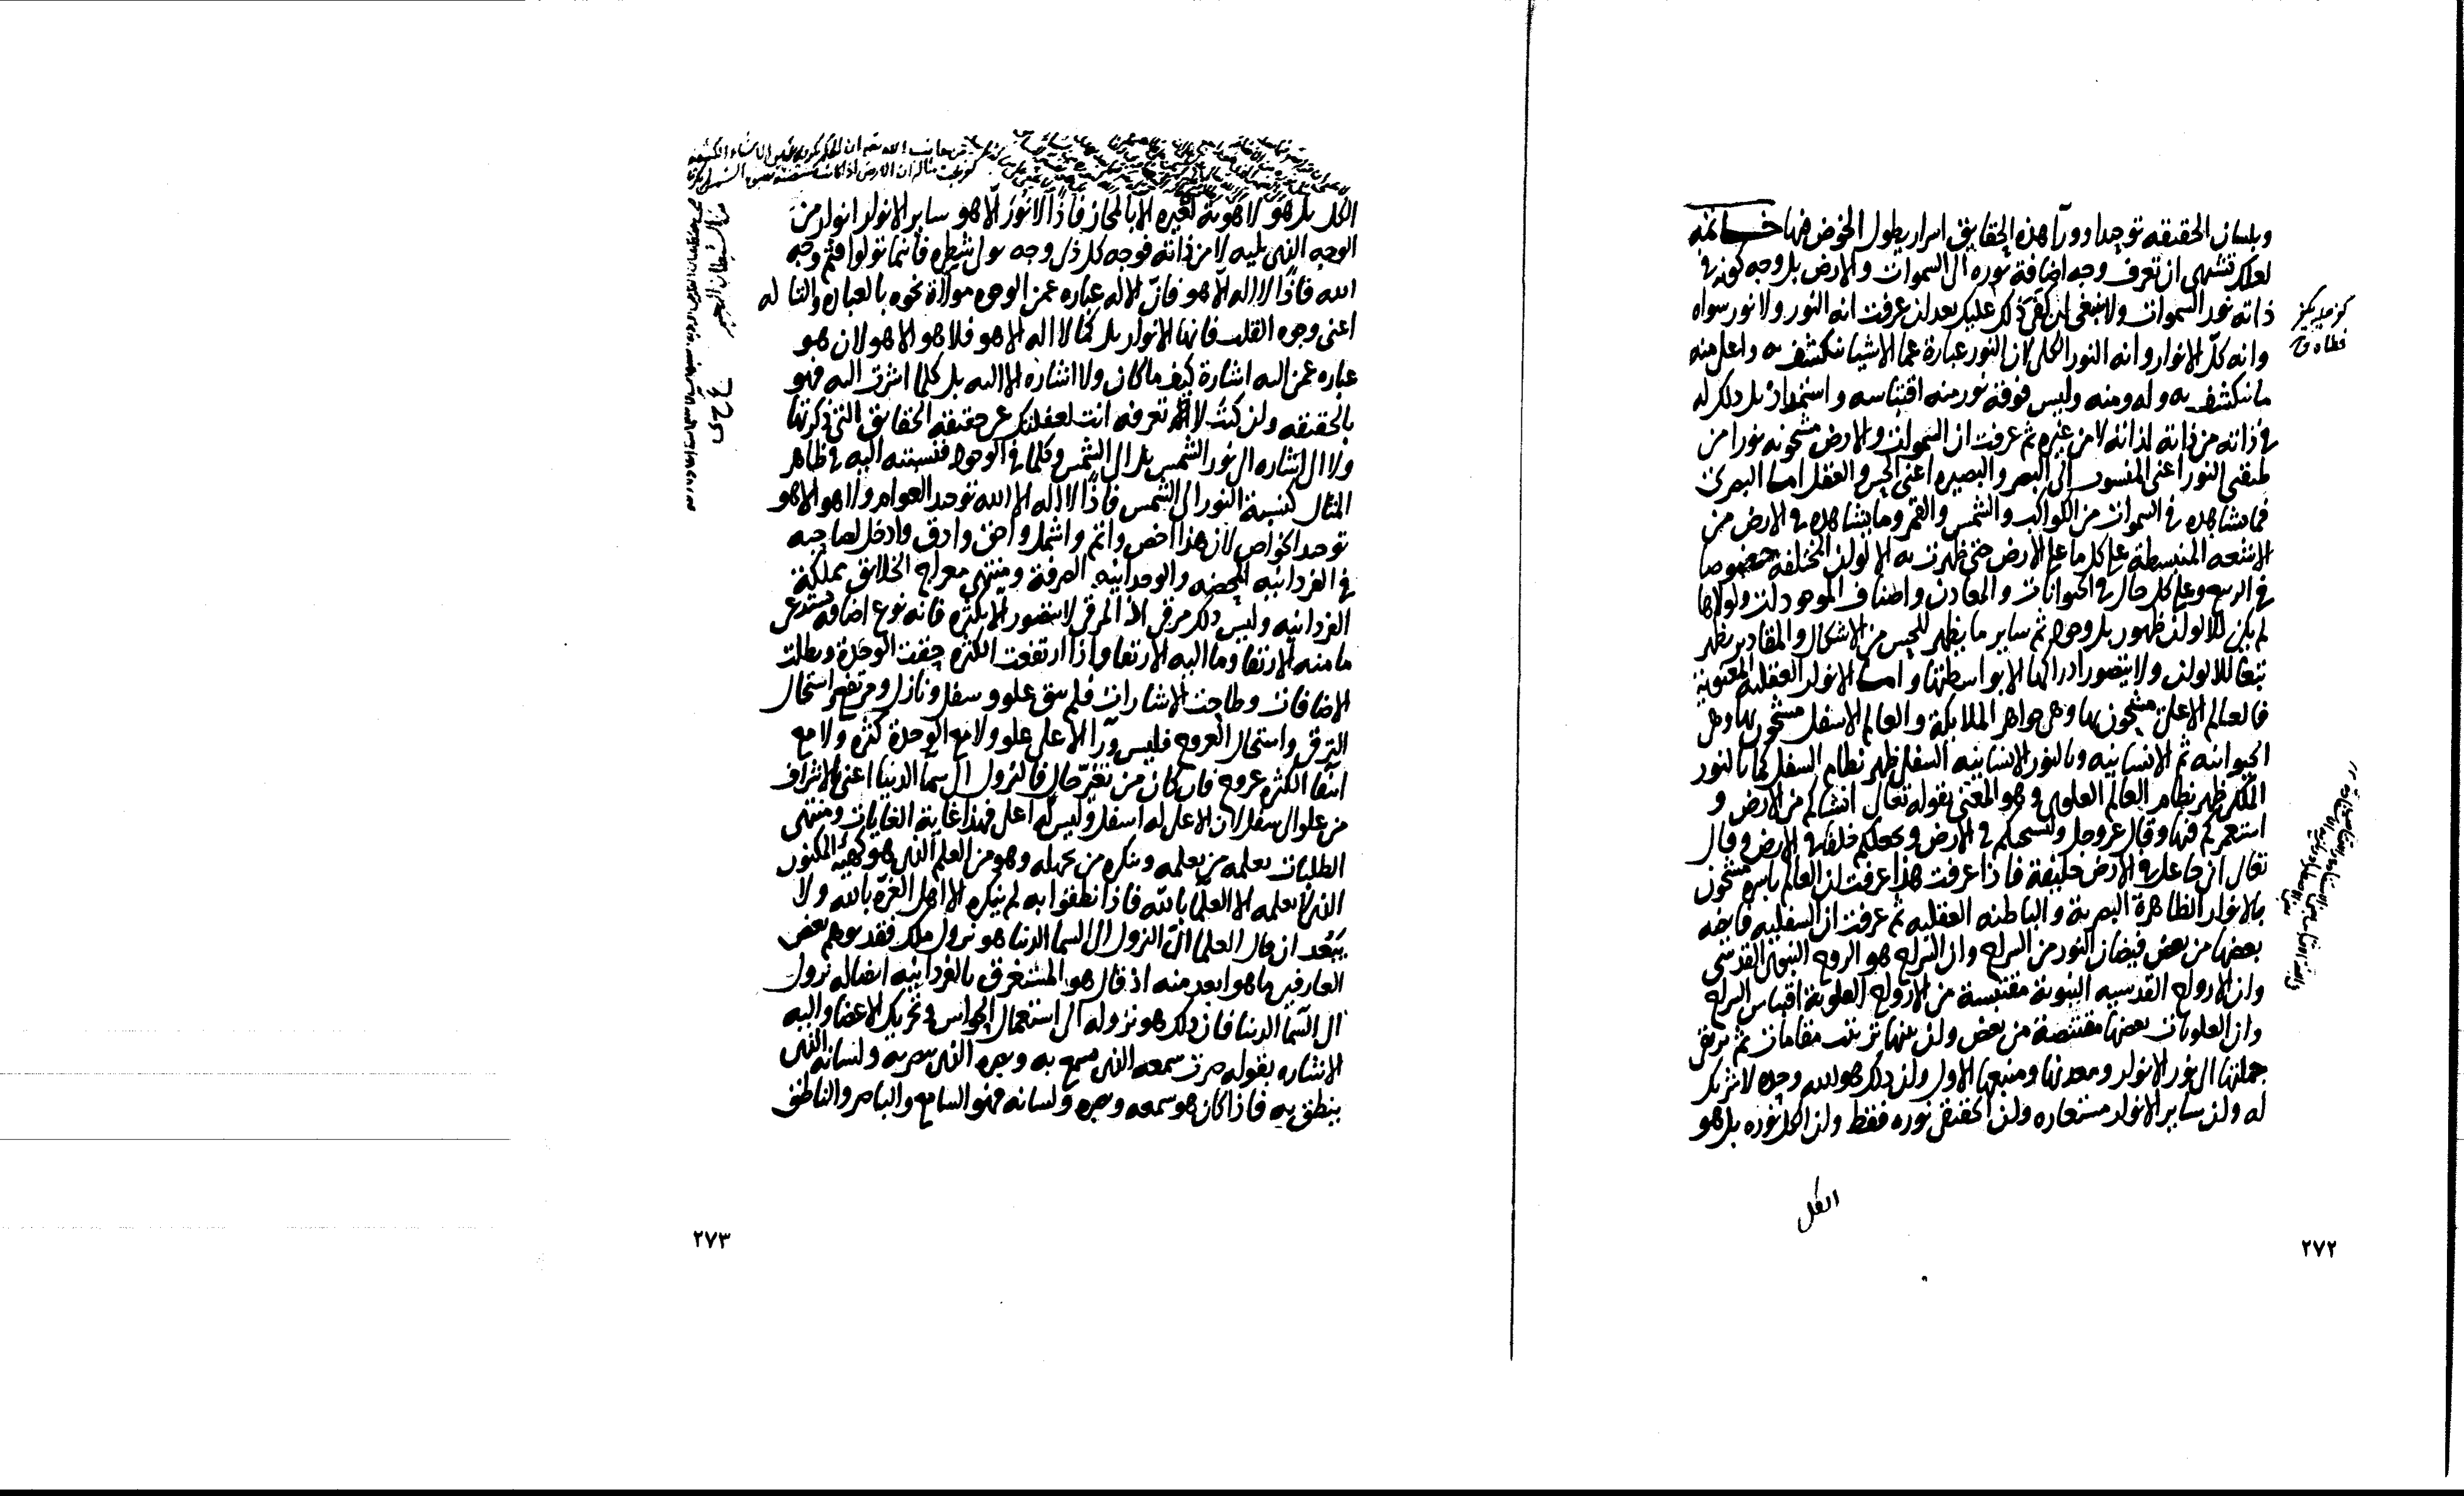 وبلسان الحقيقه توحيدا وورآ هذه الحقايق اسرار يطول الخوض فيها خـــاتمه
لعلك تشتهى ان تعرف وجه اضافة نوره الى السموات والارض بل وجه كونه فى
ذاته نور السموات ولا ينبغى ان يخفى ذلك عليك بعد ان عرفت انه النور ولا نور سواه
وانه كلّ الانوار وانه النور الكلى لان النور عبارة عما الاشيا تنكشف به واعلى منه
ما تنكشف به وله ومنه وليس فوقه نور منه اقتباسه واستمداده بل ذلك له
فى ذاته من ذاته لذاته لا من غيره ثم عرفت ان السموات والارض مشحونه نورا من
طبقتى النور اعنى المنسوب الى البصر والبصيره اعنى الحس والعقل اما البصرى
فما يشاهده فى السموات من الكواكب والشمس والقمر وما يشاهده فى الارض من
الاشعه المنبسطة على كل ما على الارض حتى ظهرت به الالوان المختلفة خصوصا
فى الربيع وعلى كل حال فى الحيوانات والمعادن واصناف الموجودات ولولاها
لم يكن للالوان ظهور بل وجود ثم ساير ما يظهر للحس من الاشكال والمقادير يظهر
تبعا للالوان ولا يتصور ادراكها الا بواسطتها واما الانوار العقليه المعنوية
فالعالم الاعلى مشحون بها وهى جواهر الملايكة والعالم الاسفل مشحون بها وهى
الحيوانيه ثم الانسانيه وبالنور الانسانيه السفلى ظهر نظام السفل كما بالنور
الملكى ظهر نظام العالم العلوى وهو المعنى بقوله تعالى انشاكم من الارض و
استعمركم فيها وقال عز وجل وليستخلفنكم فى الارض ويجعلكم خلفا فى الارض وقال
تعالى انى جاعل فى الارض خليفة فاذا عرفت هذا عرفت ان العالم باسره مشحون
بالانوار الظاهرة البصرية والباطنه العقليه ثم عرفت ان السفليه فايضه
بعضها من بعض فيضان النور من السراج وان السراج هو الروح النبوى القدسى
وان الارواح القدسيه النبوية مقتبسة من الارواح العلوية اقتباس السراج
وان العلويات بعضها مقتبسة من بعض وان بينها ترتيب مقامات ثم يرتقى
جملتها الى نور الانوار ومعدنها ومنبعها الاول وان ذلك هو الله وحده لا شريك
له وان ساير الانوار مستعاره وان الحقيقى نوره فقط وان الكل نوره بل هو
الكل
٢٧٢
الكل بل هو لا هوية لغيره الا بالمجاز فاذًا لا نور الا هو ساير الانوار انوار من
الوجه الذى يليه لا من ذاته فوجه كل ذى وجه مولى شطره فاينما تولوا فثم وجه
الله فاذًا لا اله الا هو فان الاله عبارة عمن الوجوه مولاة نحوه بالعباده والتاله
اعنى وجوه القلب فانها الانوار بل كما لا اله الا هو فلا هو الا هو لان هو
عباره عمن اليه اشارة كيف ما كان ولا اشاره الا اليه بل كلما اشرت اليه فهو
بالحقيقه وان كنت لا تعرفه انت لغفلتك عن حقيقة الحقايق التى ذكرتها
ولا اشاره الى نور الشمس بل الى الشمس وكلما فى الوجود فنسبته اليه فى ظاهر
المثال كنسبة النور الى الشمس فاذًا لا اله الا الله توحيد العوام ولا هو الا هو
توحيد الخواص لان هذا اخص واتم واشمل واحق وادق وادخل لصاحبه
فى الفردانيه المحضه والوحدانيه الصرفة ومنتهى معراج الخلايق مملكة
الفردانيه وليس ذلك مرقى اذ المرقى لا يتصور الا بكثره فانه نوع اضافة يستدعى
ما منه الارتقا وما اليه الارتقا واذا ارتفعت الكثره حقت الوحدة وبطلت
الاضافات وطاحت الاشارات فلم يبق علو وسفل ونازل ومرتفع واستحال
الترقى واستحال العروج فليس ورآ الاعلى علو ولا مع الوحدة كثره ولا مع
انتفا الكثره عروج فان كان من تغيّر حال فالنزول الى سما الدنيا اعنى الاشراف
من علو الى سفل لان الاعلى له اسفل وليس له اعلى فهذا غاية الغايات ومنتهى
الطلبات يعلمه من يعلمه وينكره من يجهله وهو من العلم الذى هو كهيئة المكنون
الذى لا يعلمه الا العلما بالله فاذا نطقوا به لم ينكره الا اهل الغرّة بالله ولا
يبعد ان قال العلما ان النزول الى السما الدنيا هو نزول ملك فقد توهم بعض
العارفين ما هو ابعد منه اذ قال هو المستغرق بالفردانيه ايضا له نزول
الى السما الدنيا فان ذلك هو نزوله الى استعمال الحواس فى تحريك الاعضا واليه
الاشاره بقوله صرت سمعه الذى يسمع به وبصره الذى يبصر به ولسانه الذى
ينطق به فاذا كان هو سمعه وبصره ولسانه فهو السامع والباصر والناطق
٢٧٣